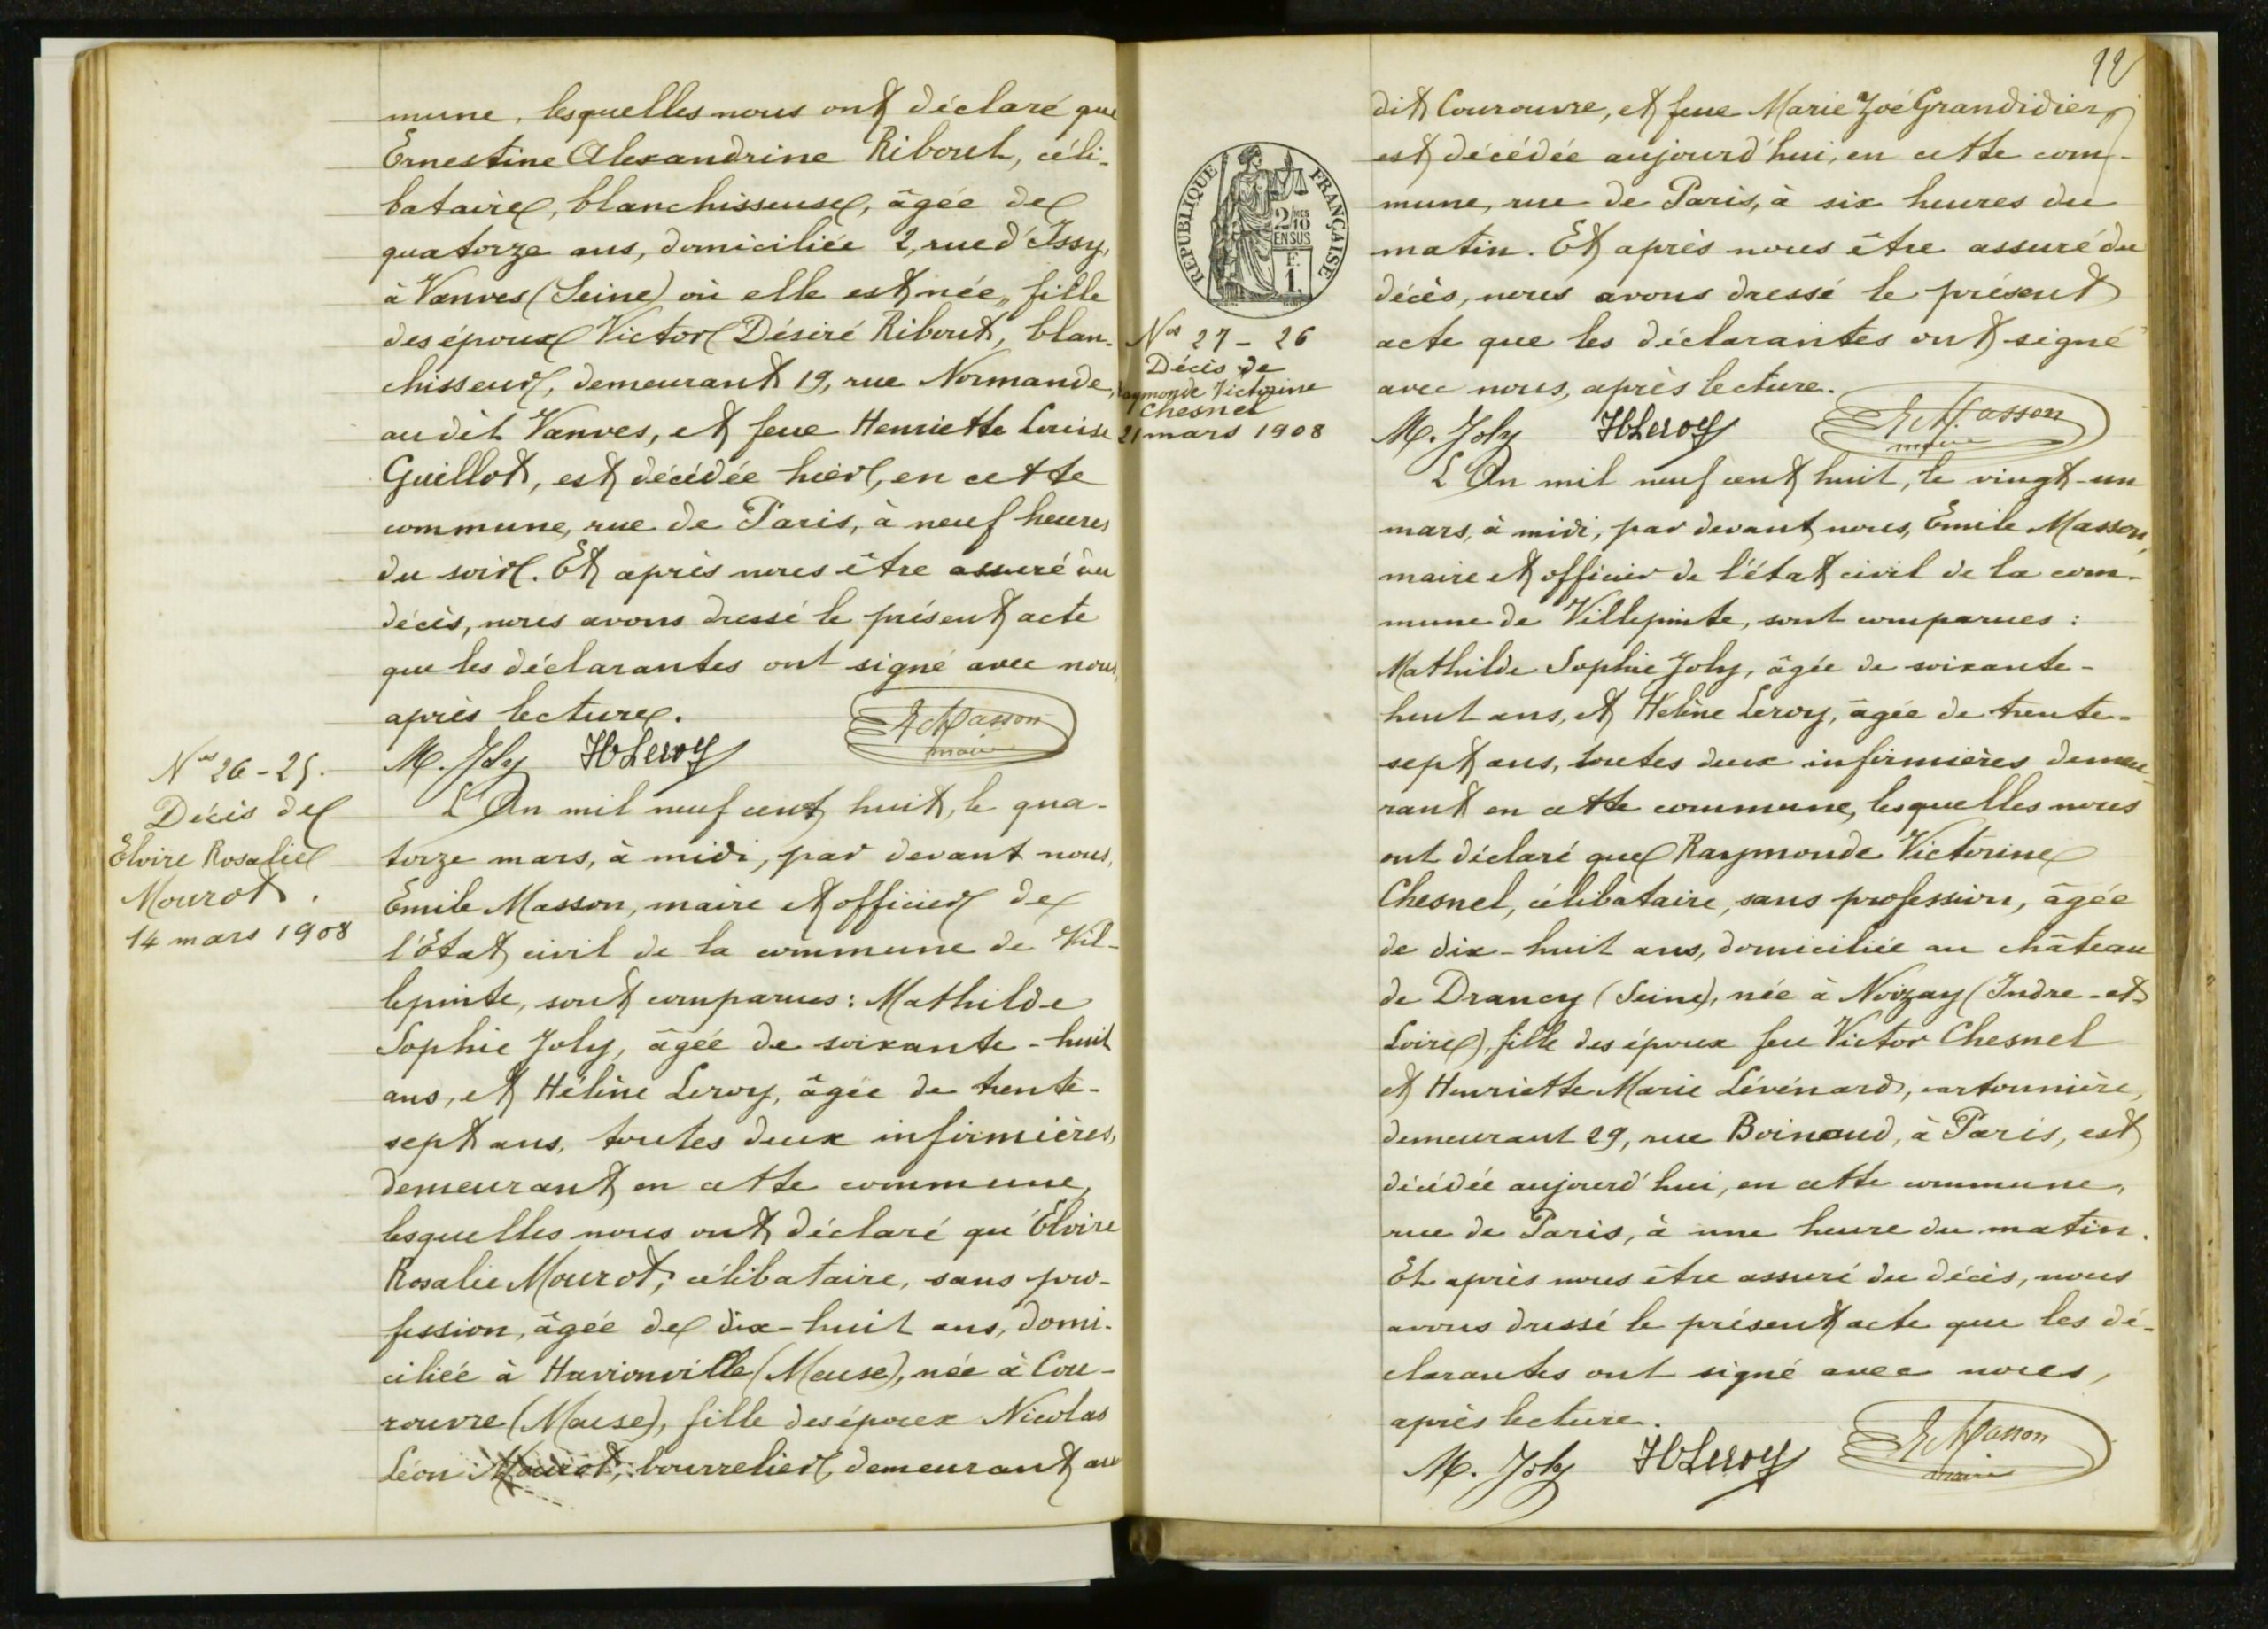 mune, lesquelles nous ont déclaré que
Ernestine Alexandrine Ribout, céli-
bataire, blanchisseuse, âgée de
quatorze ans, domiciliée 2, rue d'Issy,
à Vanves (Seine) où elle est née, fille
des époux Victor Désiré Ribout, blan-
chisseur, demeurant 19, rue Normande,
au dit Vanves, et feue Henriette Louise
Guillot, est décédée hier, en cette
commune, rue de Paris, à neuf heures
du soir. Et après nous être assuré du
décès, nous avons dressé le présent acte
que les déclarantes ont signé avec nous,
après lecture.
M. Joly HLeroy EMasson
maire
Nos 26-25.
Décès de
Elvire Rosalie
Mourot.
14 mars 1908
L'An mil neuf cent huit, le qua-
torze mars, à midi, par devant nous,
Emile Masson, maire et officier de
l'état civil de la commune de Vil-
lepinte, sont comparues : Mathilde
Sophie Joly, âgée de soixante-huit
ans, et Hélène Leroy, âgée de trente-
sept ans, toutes deux infirmières,
demeurant en cette commune,
lesquelles nous ont déclaré qu'Elvire
Rosalie Mourot, célibataire, sans pro-
fession, âgée de dix-huit ans, domi-
ciliée à Havrionville (Meuse), née à Cou-
rouvre (Meuse), fille des époux Nicolas
Léon Mourot, bourrelier, demeurant au
12
REPUBLIQUE FRANÇAISE
2/10MES
EN SUS
F.
1.
dit Courouvre, et feue Marie Zoé Grandidier,
est décédée aujourd'hui, en cette com-
mune, rue de Paris, à six heures du
matin. Et après nous être assuré du
décès, nous avons dressé le présent
acte que les déclarantes ont signé
avec nous, après lecture.
M. Joly HLeroy EMasson
maire
Nos 27-26
Décès de
Raymonde Victorine
Chesnel
21 mars 1908
L'An mil neuf cent huit, le vingt-un
mars, à midi, par devant nous, Emile Masson,
maire et officier de l'état civil de la com-
mune de Villepinte, sont comparues :
Mathilde Sophie Joly, âgée de soixante-
huit ans, et Hélène Leroy, âgée de trente-
sept ans, toutes deux infirmières demeu-
rant en cette commune, lesquelles nous
ont déclaré que Raymonde Victorine
Chesnel, célibataire, sans profession, âgée
de dix-huit ans, domiciliée au château
de Drancy (Seine), née à Noizay (Indre-et-
Loire), fille des époux feu Victor Chesnel
et Henriette Marie Lévénard, cartonnière,
demeurant 29, rue Boinaud, à Paris, est
décédée aujourd'hui, en cette commune,
rue de Paris, à une heure du matin.
Et après nous être assuré du décès, nous
avons dressé le présent acte que les dé-
clarantes ont signé avec nous,
après lecture.
M. Joly HLeroy EMasson
maire